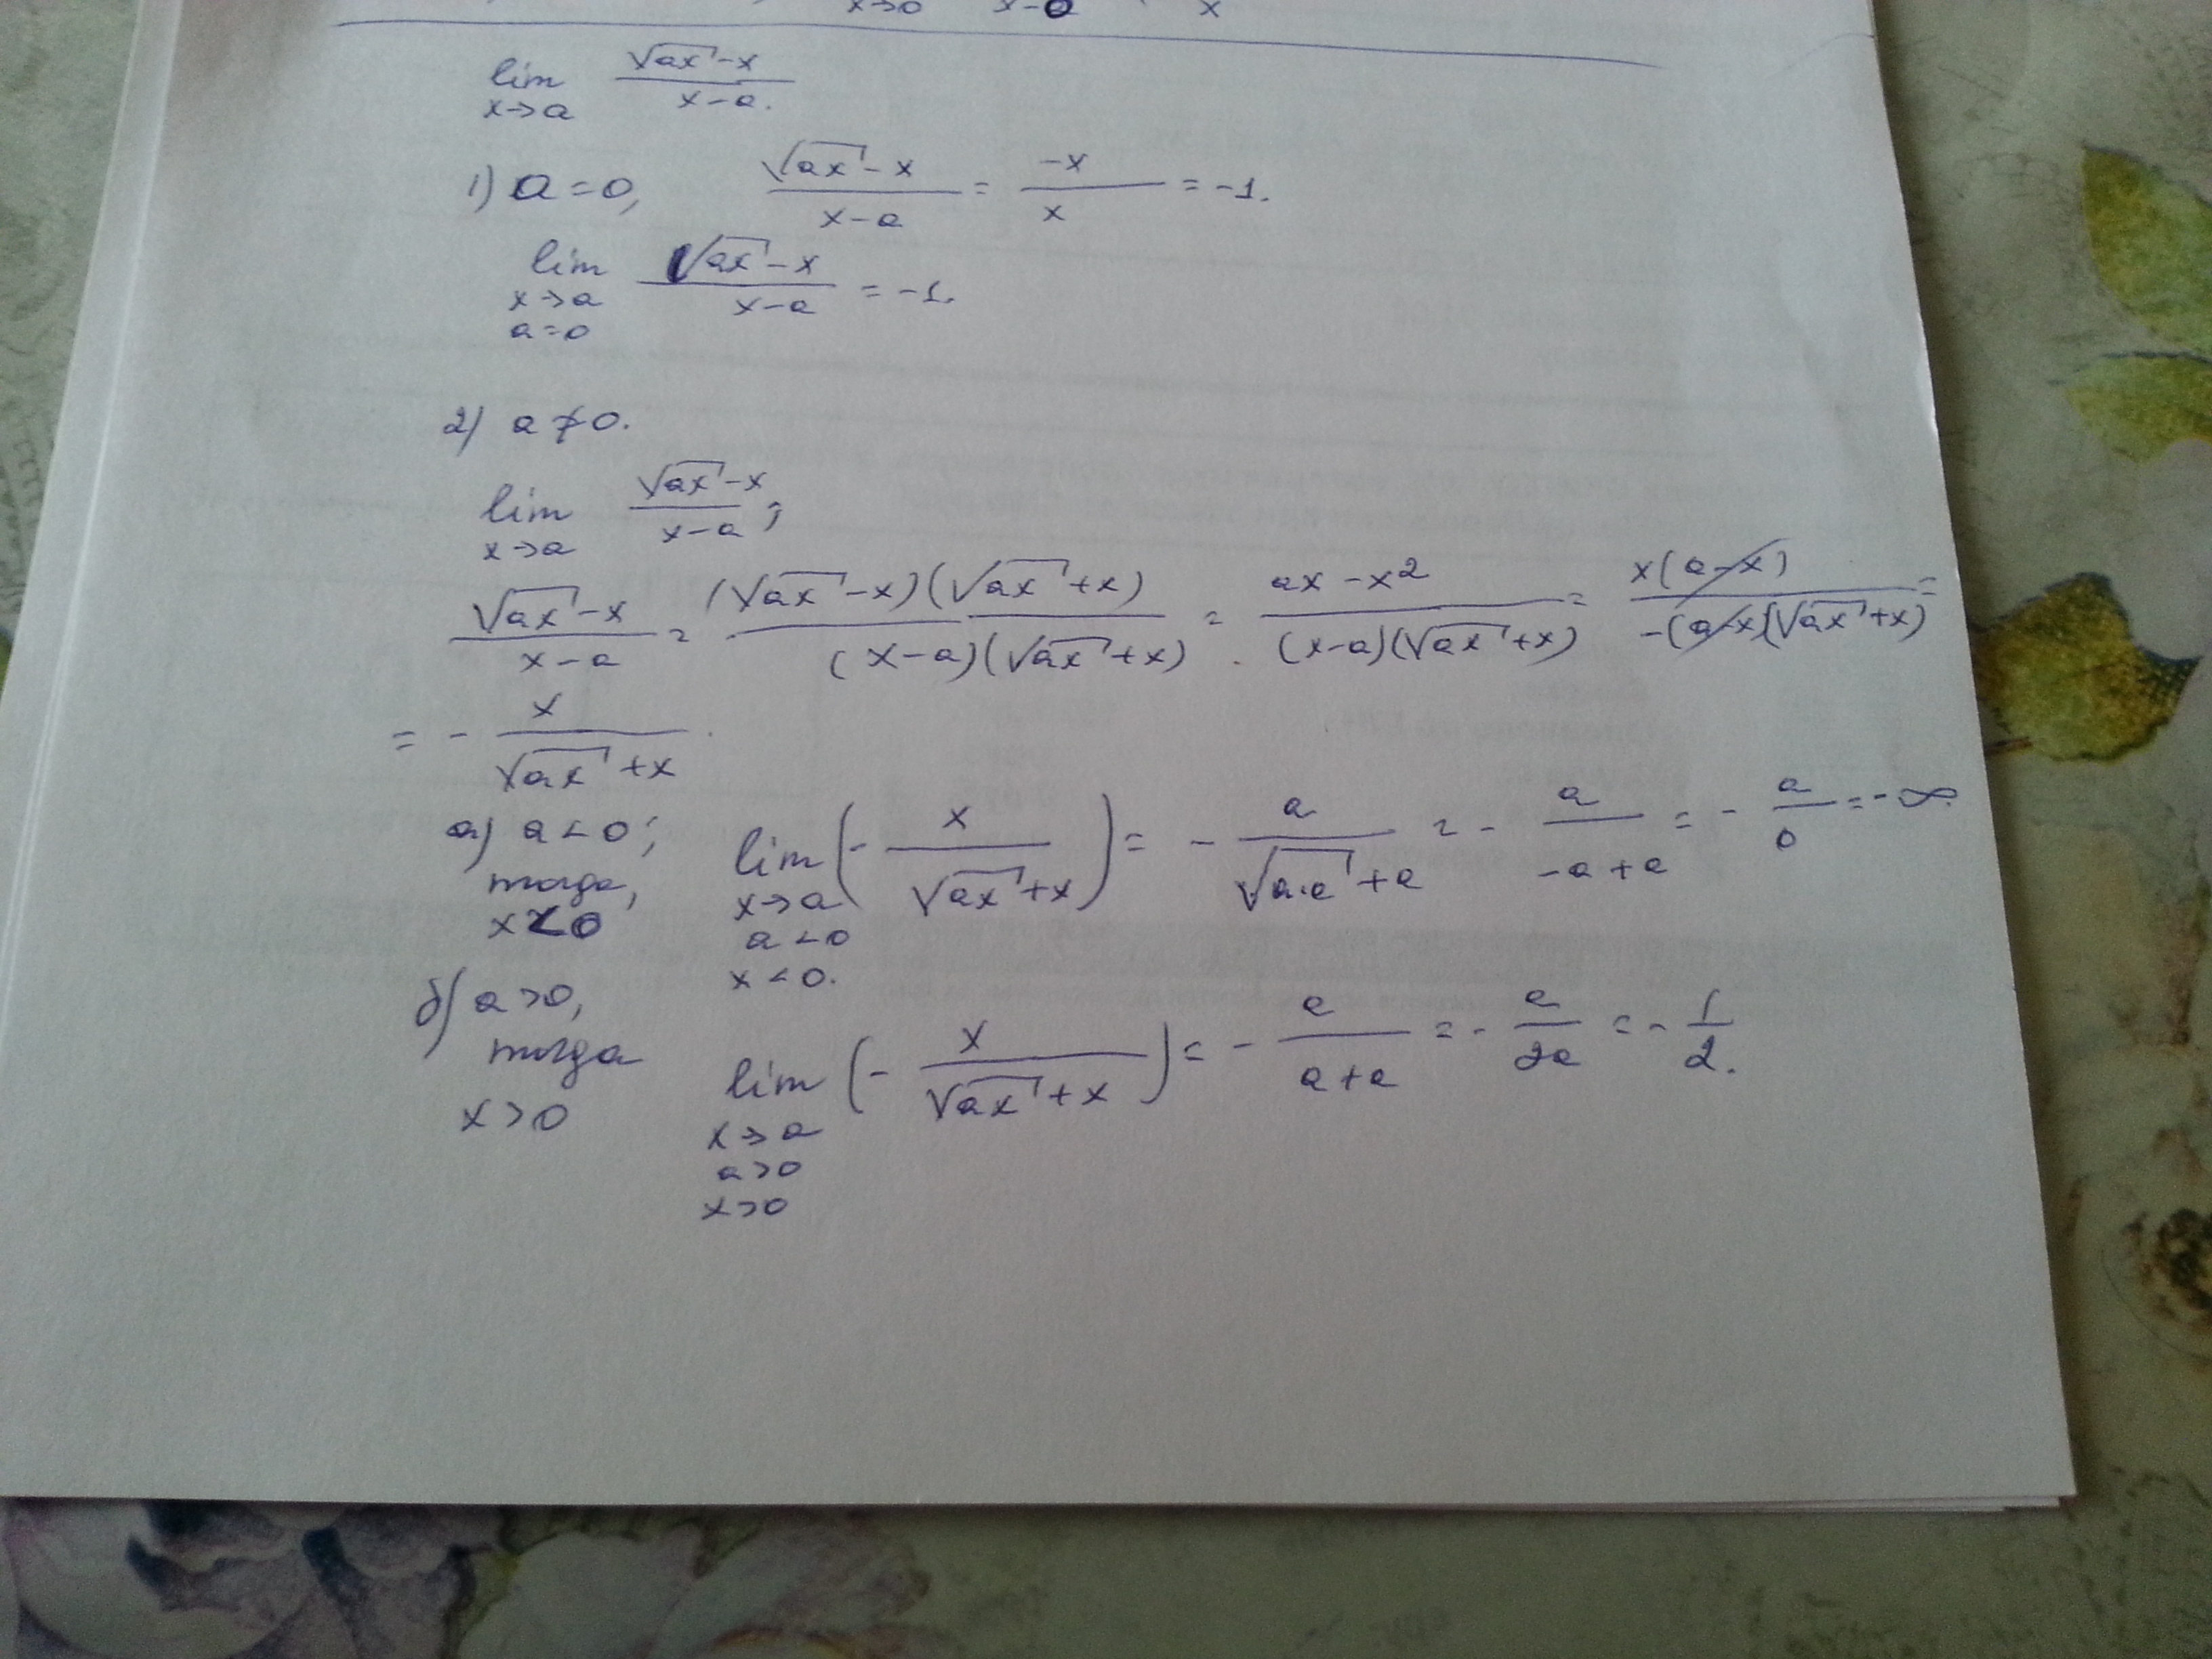 x→0 x-0 x
lim x→a (√ax - x)/(x-a).
1) a=0, (√ax - x)/(x-a) = (-x)/x = -1.
lim x→a a=0 (√ax - x)/(x-a) = -1.
2) a≠0.
lim x→a (√ax - x)/(x-a);
(√ax - x)/(x-a) = ((√ax - x)(√ax + x))/((x-a)(√ax + x)) = (ax - x²)/((x-a)(√ax + x)) = (x(a-x))/(-(a-x)(√ax + x)) =
= - x/(√ax + x).
а) a<0; тогда, x<0 lim x→a a<0 x<0. (- x/(√ax + x)) = - a/(√a·a + a) = - a/(-a+a) = - a/0 = -∞.
б) a>0, тогда x>0 lim x→a a>0 x>0 (- x/(√ax + x)) = - a/(a+a) = - a/2a = - 1/2.